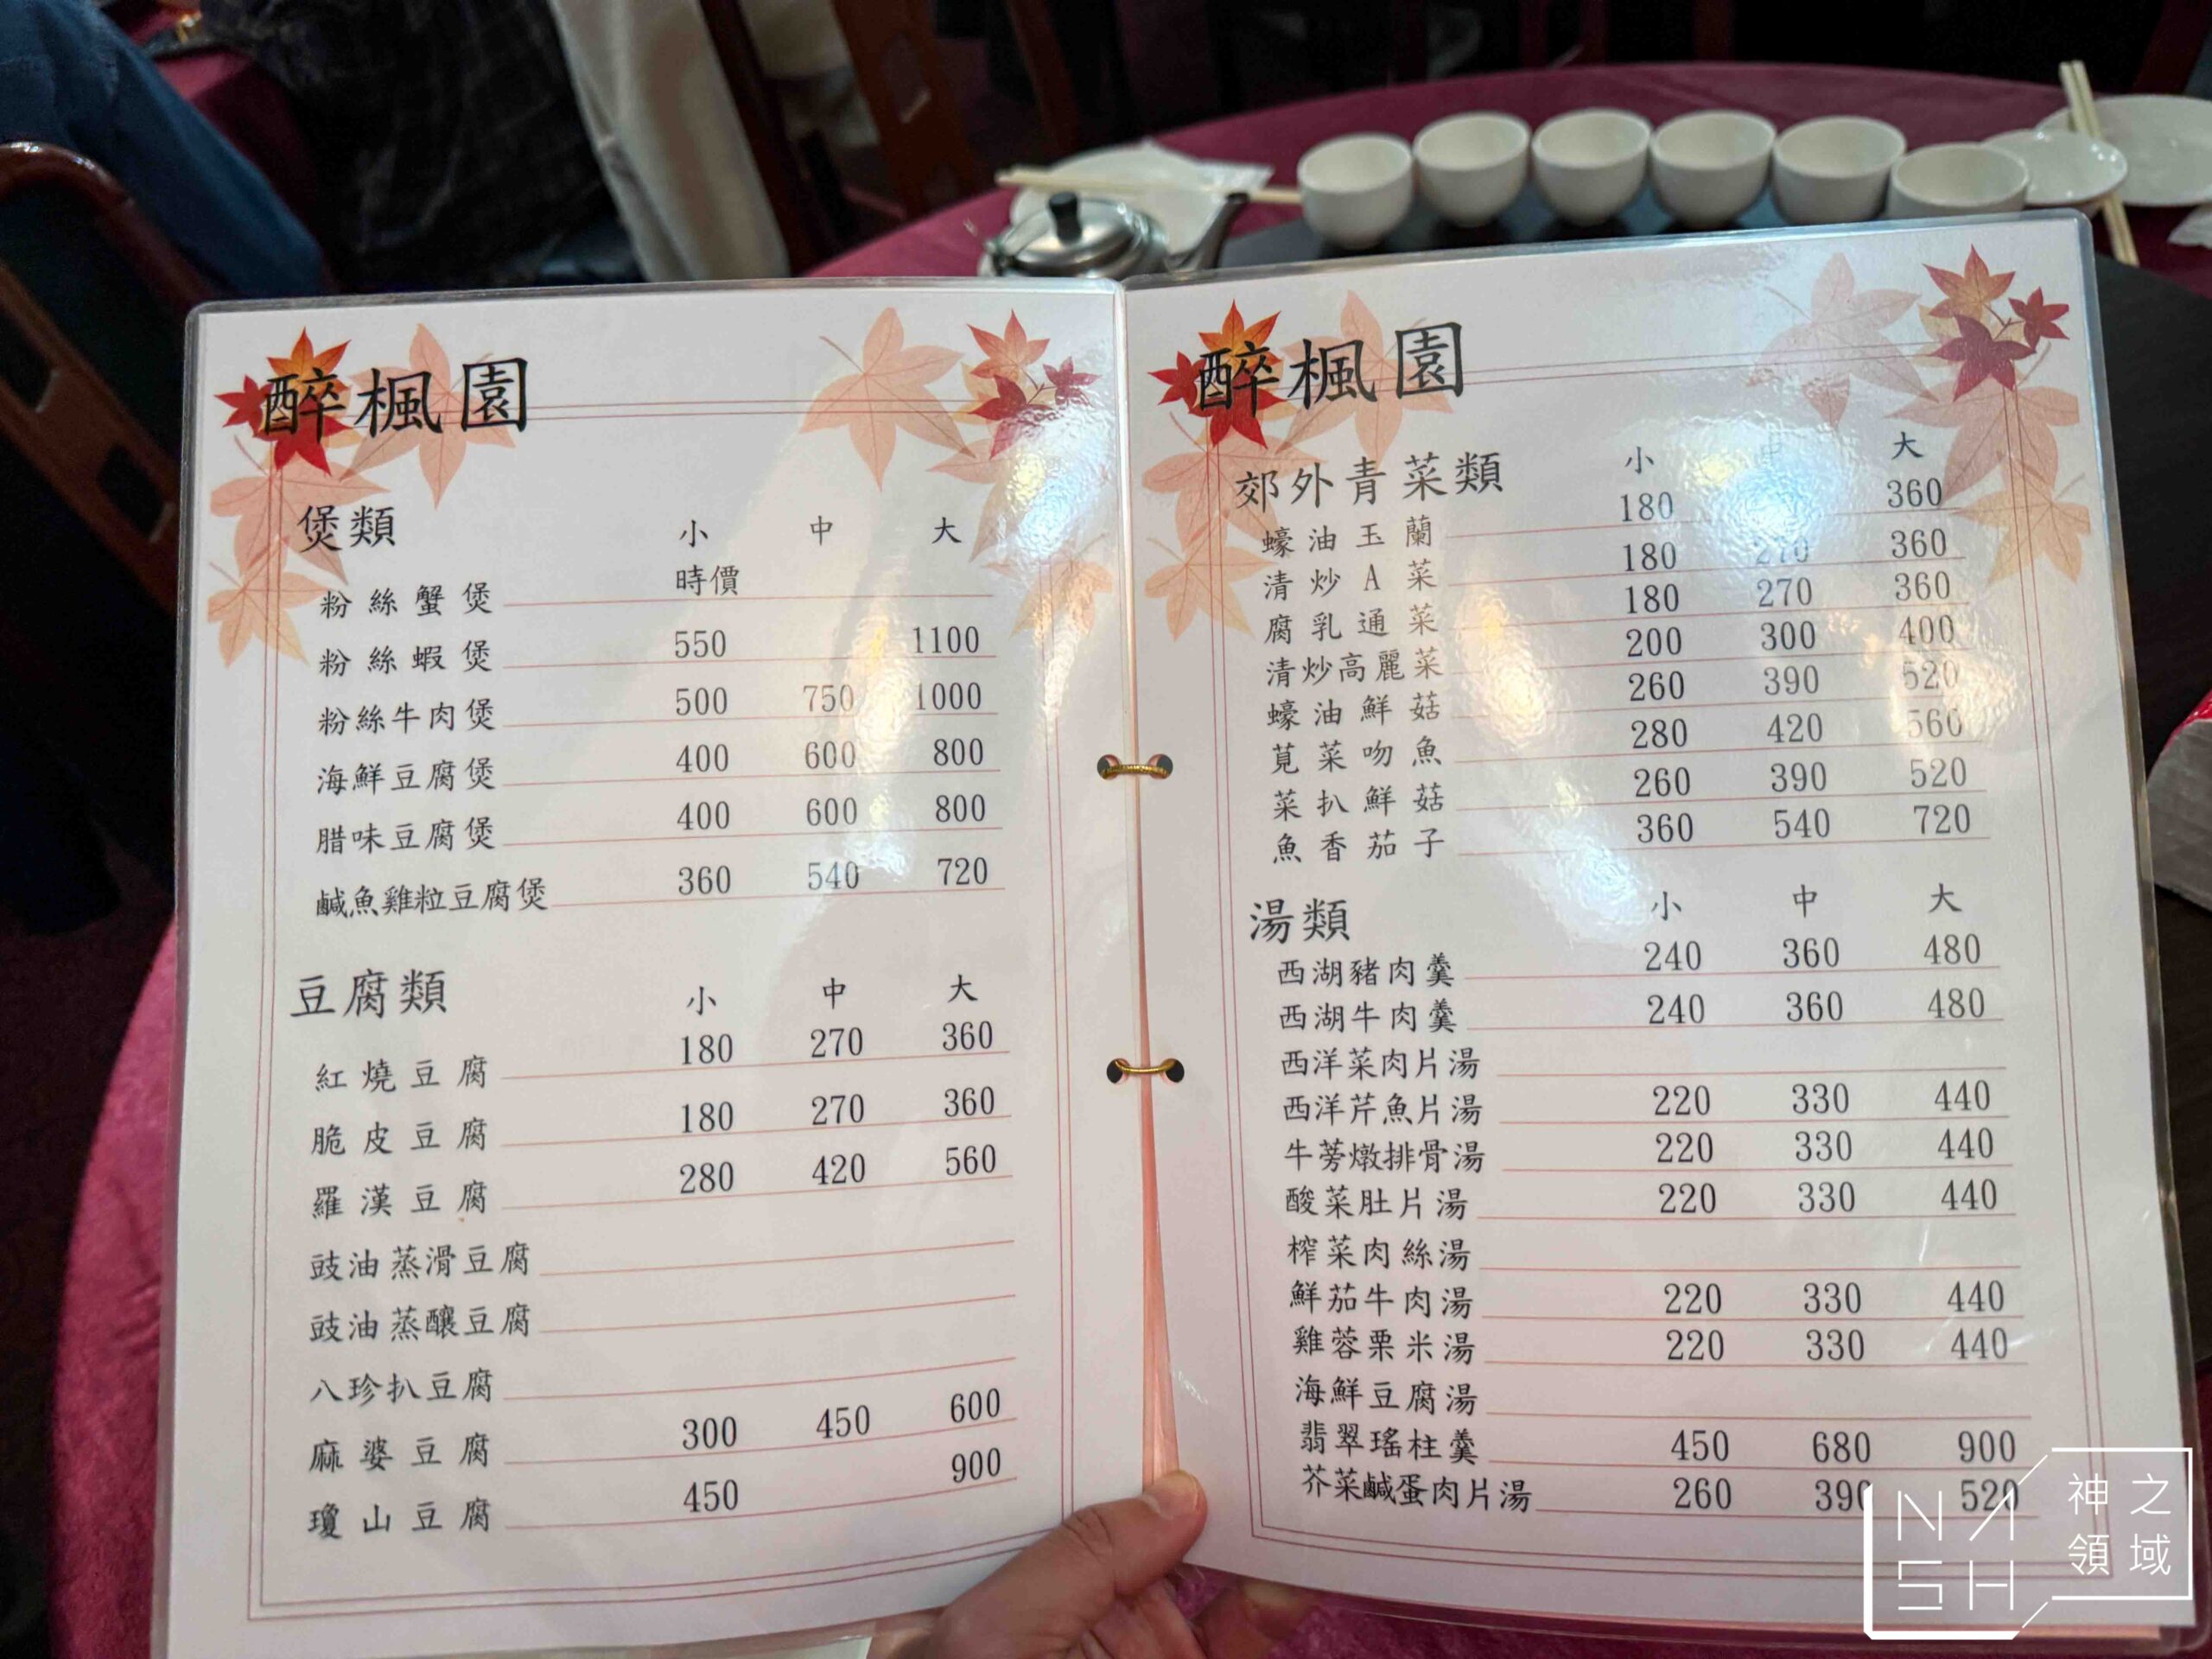 醉楓園
煲類 小 中 大
粉絲蟹煲 時價
粉絲蝦煲 550 1100
粉絲牛肉煲 500 750 1000
海鮮豆腐煲 400 600 800
腊味豆腐煲 400 600 800
鹹魚雞粒豆腐煲 360 540 720
豆腐類 小 中 大
紅燒豆腐 180 270 360
脆皮豆腐 180 270 360
羅漢豆腐 280 420 560
豉油蒸滑豆腐
豉油蒸釀豆腐
八珍扒豆腐
麻婆豆腐 300 450 600
瓊山豆腐 450 900
醉楓園
郊外青菜類 小 中 大
蠔油玉蘭 180 360
清炒A菜 180 270 360
腐乳通菜 180 270 360
清炒高麗菜 200 300 400
蠔油鮮菇 260 390 520
莧菜吻魚 280 420 560
菜扒鮮菇 260 390 520
魚香茄子 360 540 720
湯類 小 中 大
西湖豬肉羹 240 360 480
西湖牛肉羹 240 360 480
西洋菜肉片湯
西洋芹魚片湯 220 330 440
牛蒡燉排骨湯 220 330 440
酸菜肚片湯 220 330 440
榨菜肉絲湯
鮮茄牛肉湯 220 330 440
雞蓉栗米湯 220 330 440
海鮮豆腐湯
翡翠瑤柱羹 450 680 900
芥菜鹹蛋肉片湯 260 390 520
NASH
神之領域